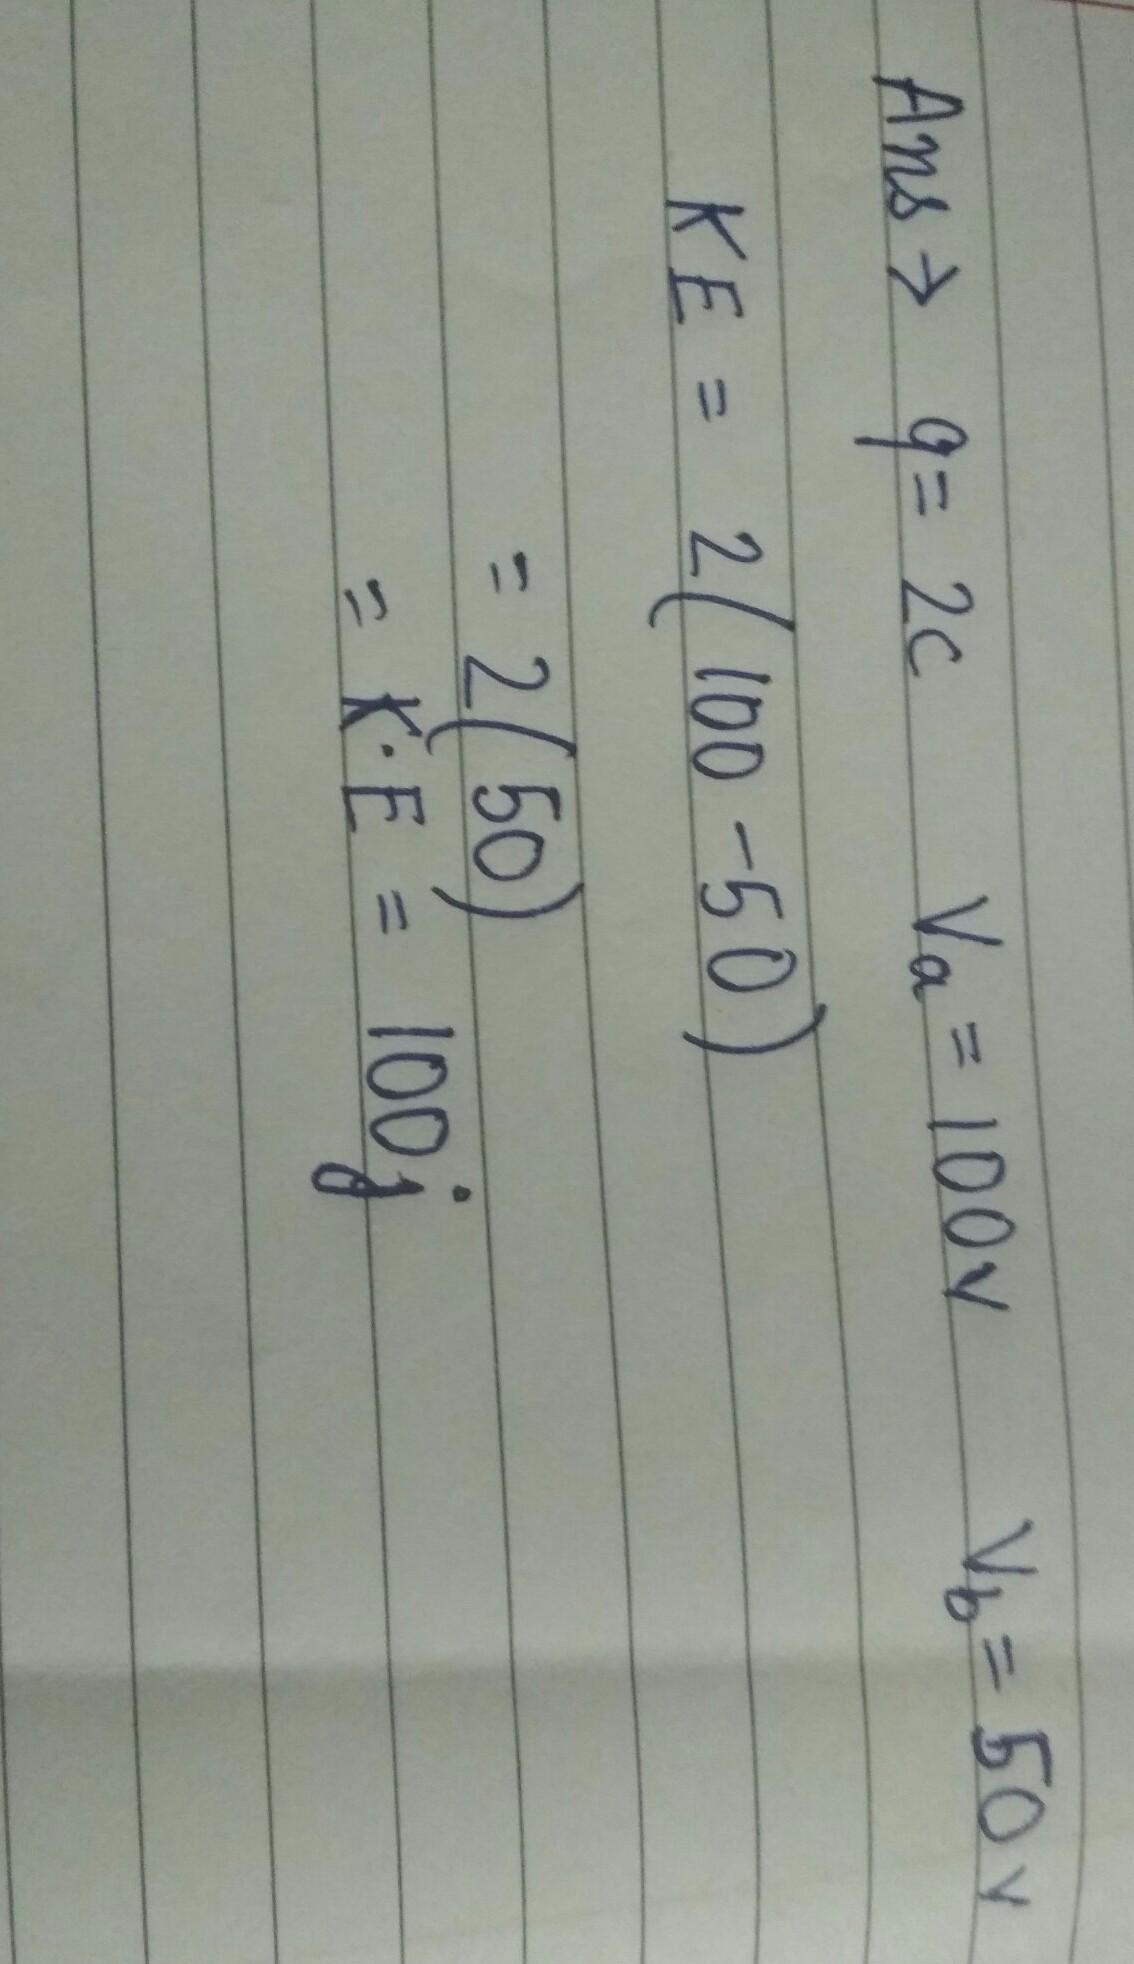 Ans > q = 2c Va = 100v Vb = 50v
KE = 2(100 - 50)
= 2(50)
= K.E = 100j